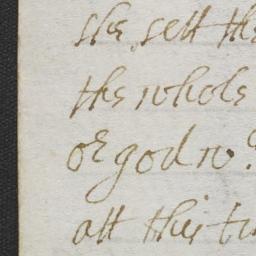 she sett the
the whole
or god w
att this tu